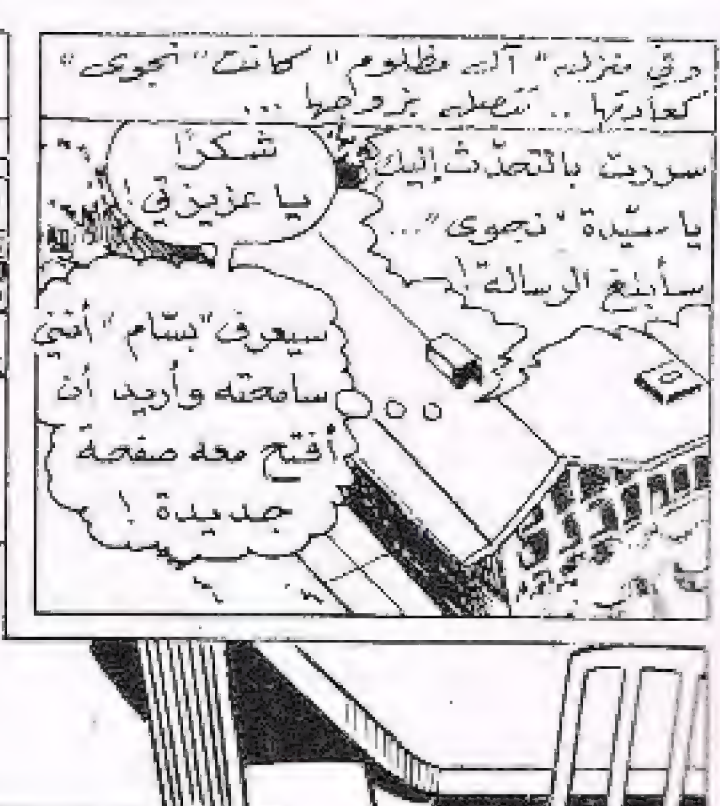 وفي منزل "آل مظلوم" كانت "نجوى"
كعادتها .. تتصل بزوجها ...
سررت بالتحدّث إليك
يا سيّدة "نجوى"...
سأبلغ الرسالة!
شكرًا
يا عزيزتي!
سيعرف "بسّام" أنني
سامحته وأريد أن
أفتح معه صفحة
جديدة!